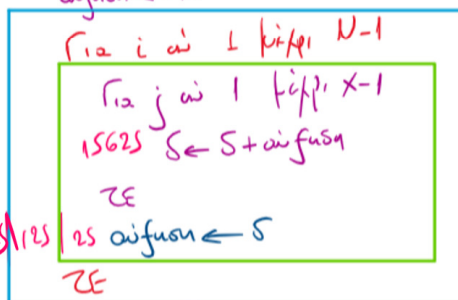 Για i από 1 μέχρι N-1
Για j από 1 μέχρι X-1
15625 S ← S + αύξηση
ΤΕ
125 | 25 αύξηση ← S
ΤΕ